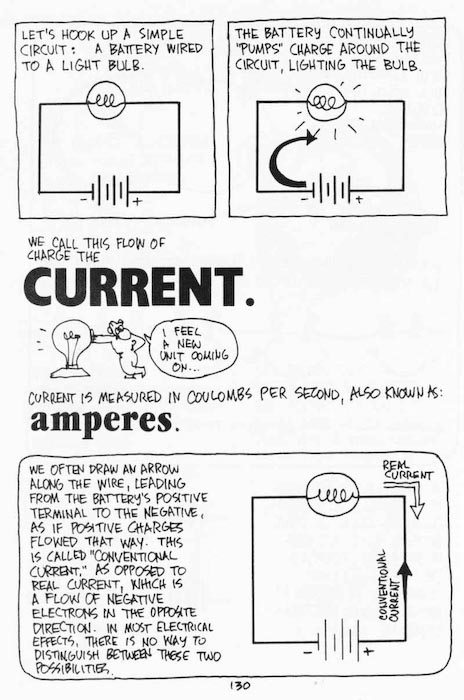 LET'S HOOK UP A SIMPLE
CIRCUIT: A BATTERY WIRED
TO A LIGHT BULB.
- +
THE BATTERY CONTINUALLY
"PUMPS" CHARGE AROUND THE
CIRCUIT, LIGHTING THE BULB.
- +
WE CALL THIS FLOW OF
CHARGE THE
CURRENT.
I FEEL
A NEW
UNIT COMING
ON...
CURRENT IS MEASURED IN COULOMBS PER SECOND, ALSO KNOWN AS:
amperes.
WE OFTEN DRAW AN ARROW
ALONG THE WIRE, LEADING
FROM THE BATTERY'S POSITIVE
TERMINAL TO THE NEGATIVE,
AS IF POSITIVE CHARGES
FLOWED THAT WAY. THIS
IS CALLED "CONVENTIONAL
CURRENT," AS OPPOSED TO
REAL CURRENT, WHICH IS
A FLOW OF NEGATIVE
ELECTRONS IN THE OPPOSITE
DIRECTION. IN MOST ELECTRICAL
EFFECTS, THERE IS NO WAY TO
DISTINGUISH BETWEEN THESE TWO
POSSIBILITIES.
REAL
CURRENT
CONVENTIONAL
CURRENT
- +
130